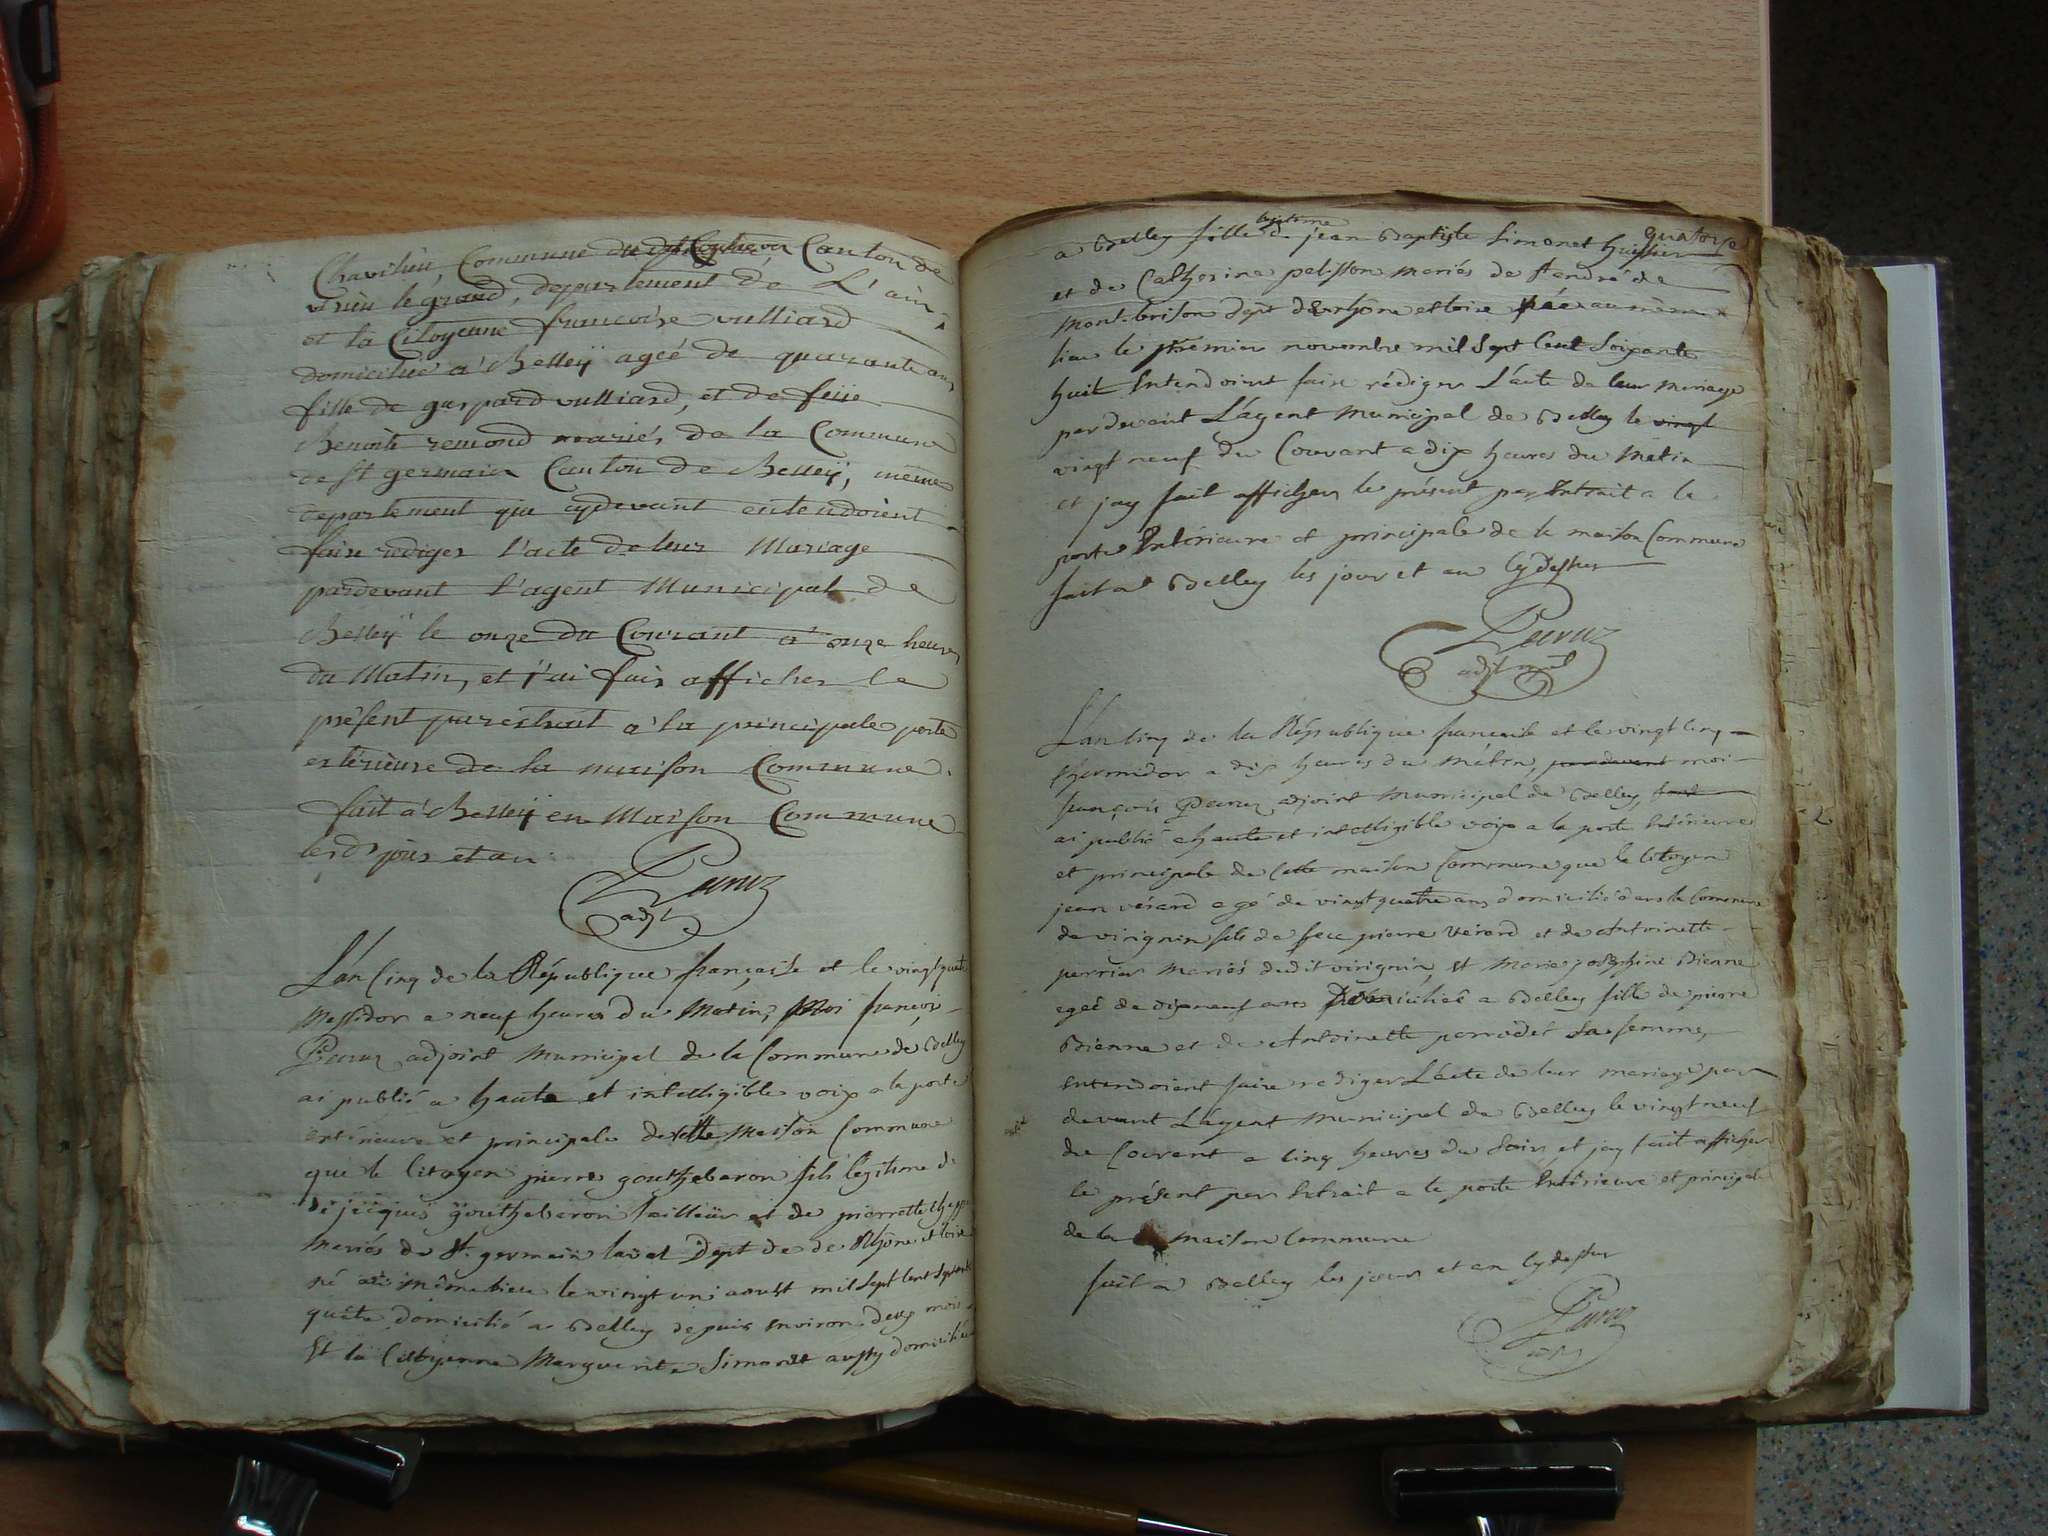 Chavilieu, Commune du Canton de
virieu le grand, departement de L'ain,
et la Citoyenne francoise vulliard
domiciliée a Belleÿ ageé de quarante ans
fille de gaspard vulliard, et de feüe
Benoite remond mariés de la Commune
de St germain Canton de Belleÿ, même
departement que cydevant entendoient
faire rediger l'acte de leur Mariage
pardevant l'agent Municipal de
Belleÿ le onze du Courant a onze heures
du Matin, et j'ai fais afficher le
présent par extrait a la principale porte
exterieure de la maison Commune.
fait a Belleÿ en Maison Commune
lesd. jour et an
Peruz
adjt
L'an Cinq de la République française et le vingt quatre
Messidor a neuf heures du Matin, Moi françois
Peruz adjoint municipal de la Commune de Belley
ai publié a haute et intelligible voix a la porte
extérieure et principale de cette Maison Commune
que le Citoyen pierre gouttebaron fils légitime de
de jacques gouttebaron tailleur et de pierrette
Mariés de St. germain laval Dept de de Rhône et loire
né au même lieu le vingt un aoust mil sept cent soixante
quatre domicilié a Belley depuis environ deux mois
Et la Citoyenne Marguerite Simonet aussy domiciliée
quatorze
a Belley fille légitime de jean Baptiste Simonet huissier
et de Catherine pelisson mariés de St andré de
Montbrison dept de rhône et loire née au même
lieu le premier novembre mil sept Cent Soixante
huit Entendoient faire rédiger L'acte de leur mariage
pardevant L'agent Municipal de Belley le vingt
vingt neuf du Courant a dix heures du Matin
et jay fait afficher le présent par Extrait a la
porte Extérieure et principale de la maison Commune
fait a Belley les jour et an cy dessus
Peruz
adjt mpal
L'an Cinq de la République francaise et le vingt cinq
thermidor a dix heures du Matin, pardevant moi
françois Peruz adjoint Municipal de Belley,
ai publié a haute et intelligible voix a la porte Extérieure
et principale de Cette maison Commune que le Citoyen
jean vérard agé de vingt quatre ans domicilié dans la Commune
de virignin fils de feu pierre vérard et de Antoinette
perrier Mariés dudit virignin, et Marie josephine Bienne
ageé de dix neuf ans Domiciliée a Belley fille de pierre
Bienne et de Antoinette perrodet Sa femme,
Entendoient faire rediger L'acte de leur mariage par
devant L'agent Municipal de Belley le vingt neuf
du Courant a Cinq heures du Soir et jay fait afficher
le présent par Extrait a la porte Extérieure et principale
de la maison Commune
fait a Belley les jour et an cy dessus
Peruz
adjt